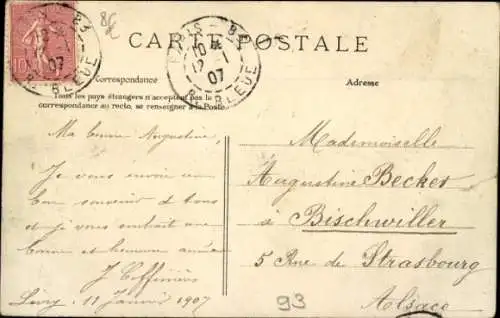 8€
PARIS - 83
10 M
12 - 1
07
R. BLEUE
10
CARTE POSTALE
Correspondance
Adresse
Tous les pays étrangers n'acceptent pas la
correspondance au recto, se renseigner à la Poste.
Ma bonne Augustine,
Je vous envoie un
bon souvenir à tous
et je vous souhaite une
bonne et heureuse année
J.
Livry 11 Janvier 1907
Mademoiselle
Augustine Becker
à Bischwiller
5 Rue de Strasbourg
Alsace
93